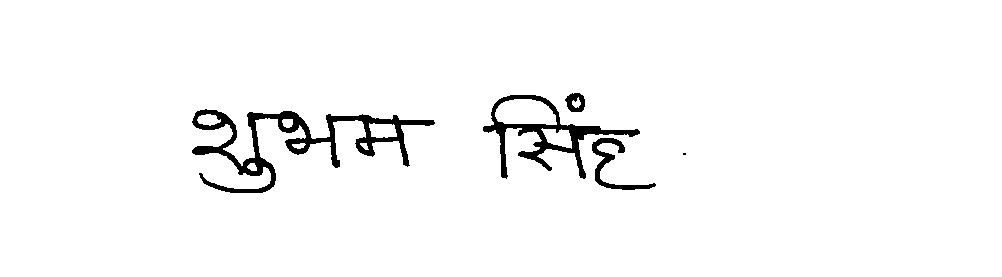 शुभम सिंह